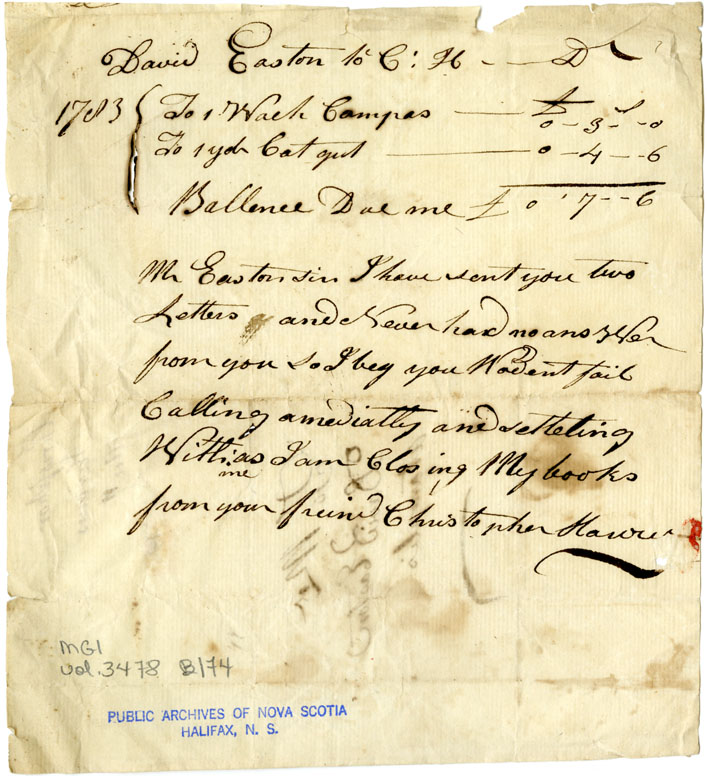 David Easton to C: H -- Dr
1783 { To 1 Wach Campas — £0-3-0
To 1 yde Cat gut — 0-4--6
Ballence Due me £ 0 ' 7--6
Mr Easton sir I have sent you two
Letters and Never had no ans Wer
from you so I beg you Wod'ent fail
Calling amediatly and setteling
With as I am Clos ing My books
me
from your freind Christopher
MG1
vol. 3478 B/74
PUBLIC ARCHIVES OF NOVA SCOTIA
HALIFAX, N. S.